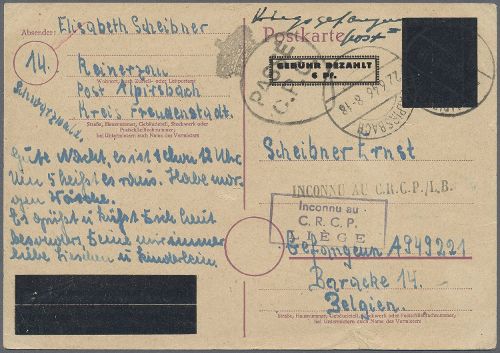 Absender: Elisabeth Scheibner
14. Rainerzon
Wohnort, auch Zustell- oder Leitpostamt
Post Alpirsbach
Kreis Freudenstadt.
Schwarzwald.
Straße, Hausnummer, Gebäudeteil, Stockwerk oder
Postschließfachnummer,
bei Untermietern auch Name des Vermieters
Gute Nacht, es ist schon 12 Uhr
Um 5 heißt es raus. Habe mor-
gen Wäsche.
Es grüßt u küßt Dich heut
besonders Deine nur immer
liebe Lieschen u Kinderlein.
Kriegsgefangenen
post
Postkarte
GEBÜHR BEZAHLT
6 Pf.
22.6.46 8-18
ALPIRSBACH
Scheibner Ernst
INCONNU AU C.R.C.P./L.B.
Inconnu au
C.R.C.P.
LIÈGE
Gefangenen A949221
Baracke 14.
Belgien.
Straße, Hausnummer, Gebäudeteil, Stockwerk oder Postschließfachnummer,
bei Untermietern auch Name des Vermieters